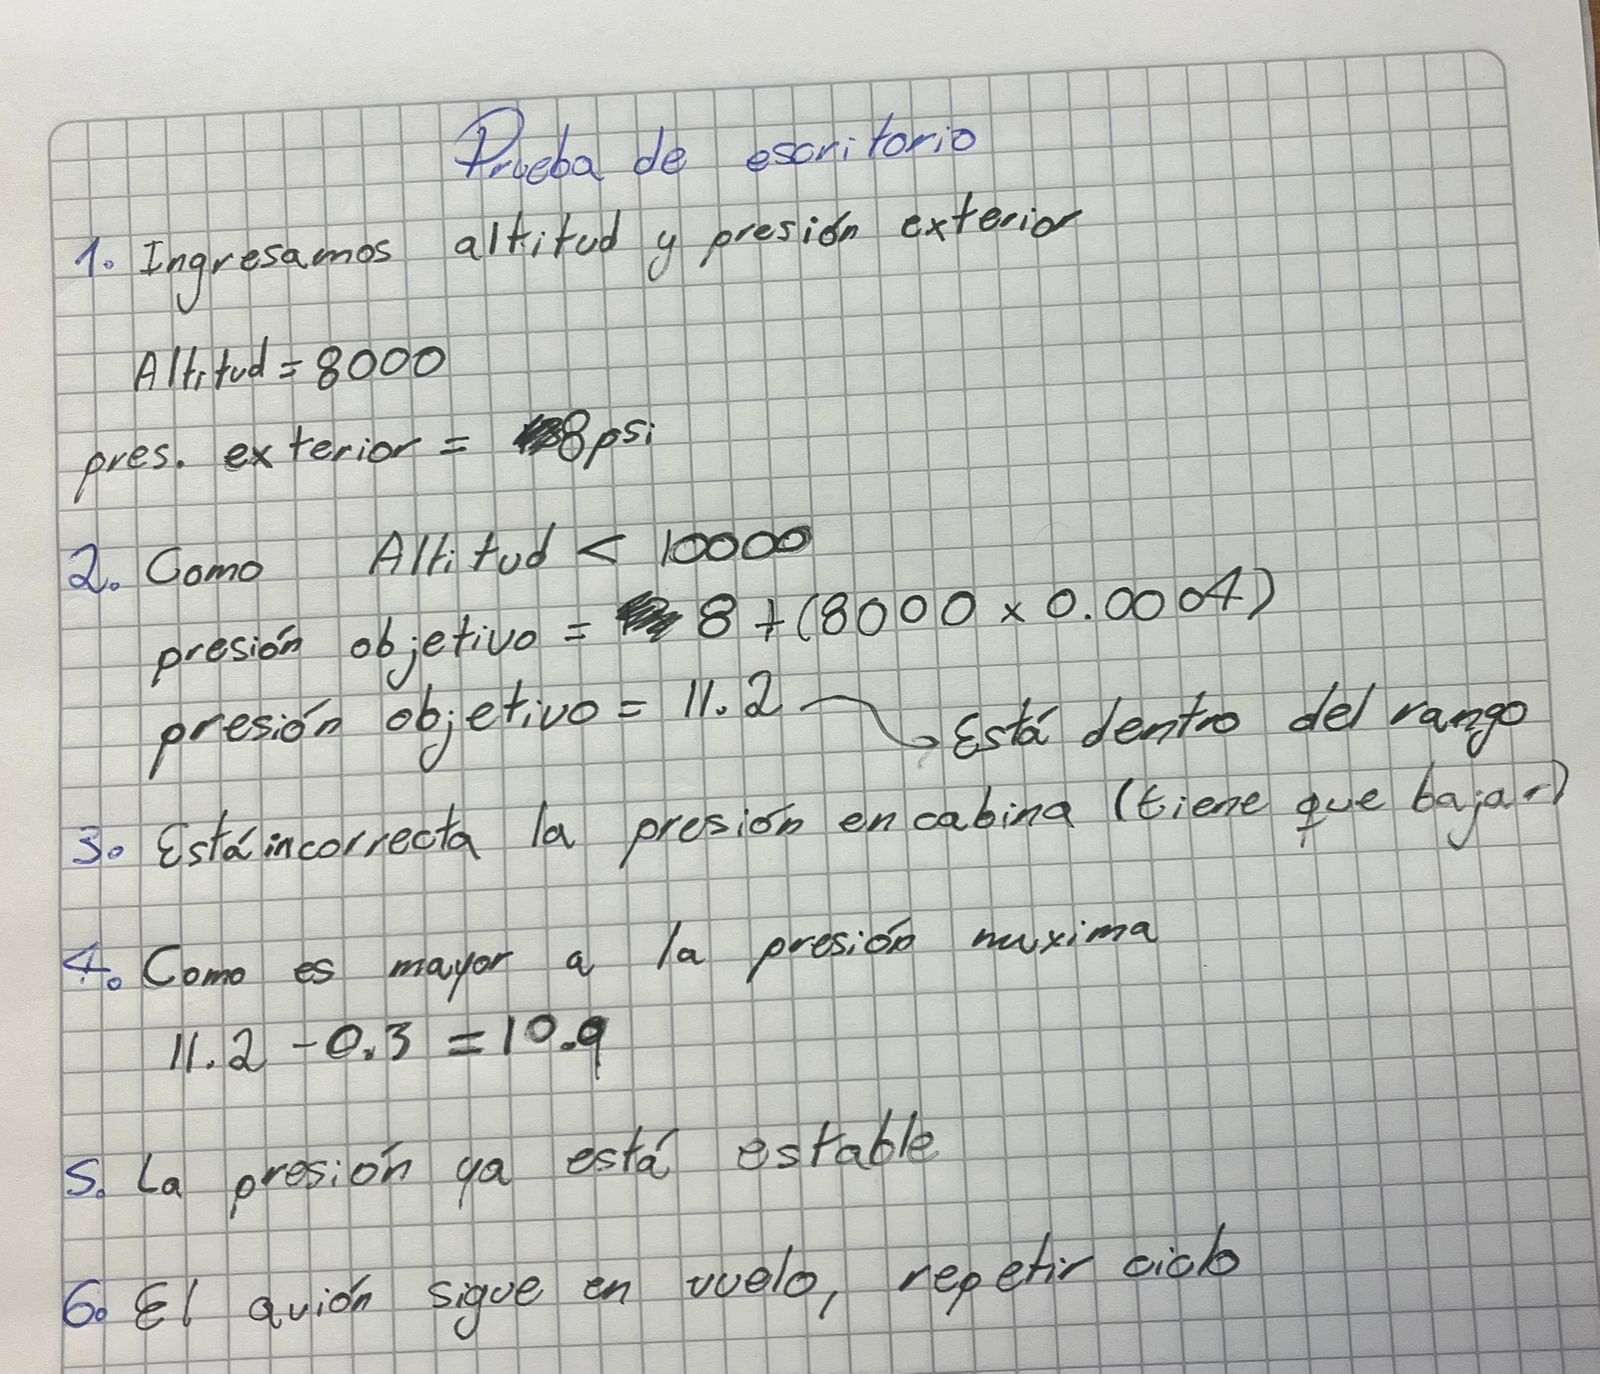 Prueba de escritorio
1. Ingresamos altitud y presión exterior
Altitud = 8000
pres. exterior = 8psi
2. Como Altitud < 10000
presión objetivo = 8 + (8000 x 0.0004)
presión objetivo = 11.2 → Está dentro del rango
3. Está incorrecta la presión en cabina (tiene que bajar)
4. Como es mayor a la presión maxima
11.2 - 0.3 = 10.9
5. La presión ya está estable
6. El avión sigue en vuelo, repetir ciclo